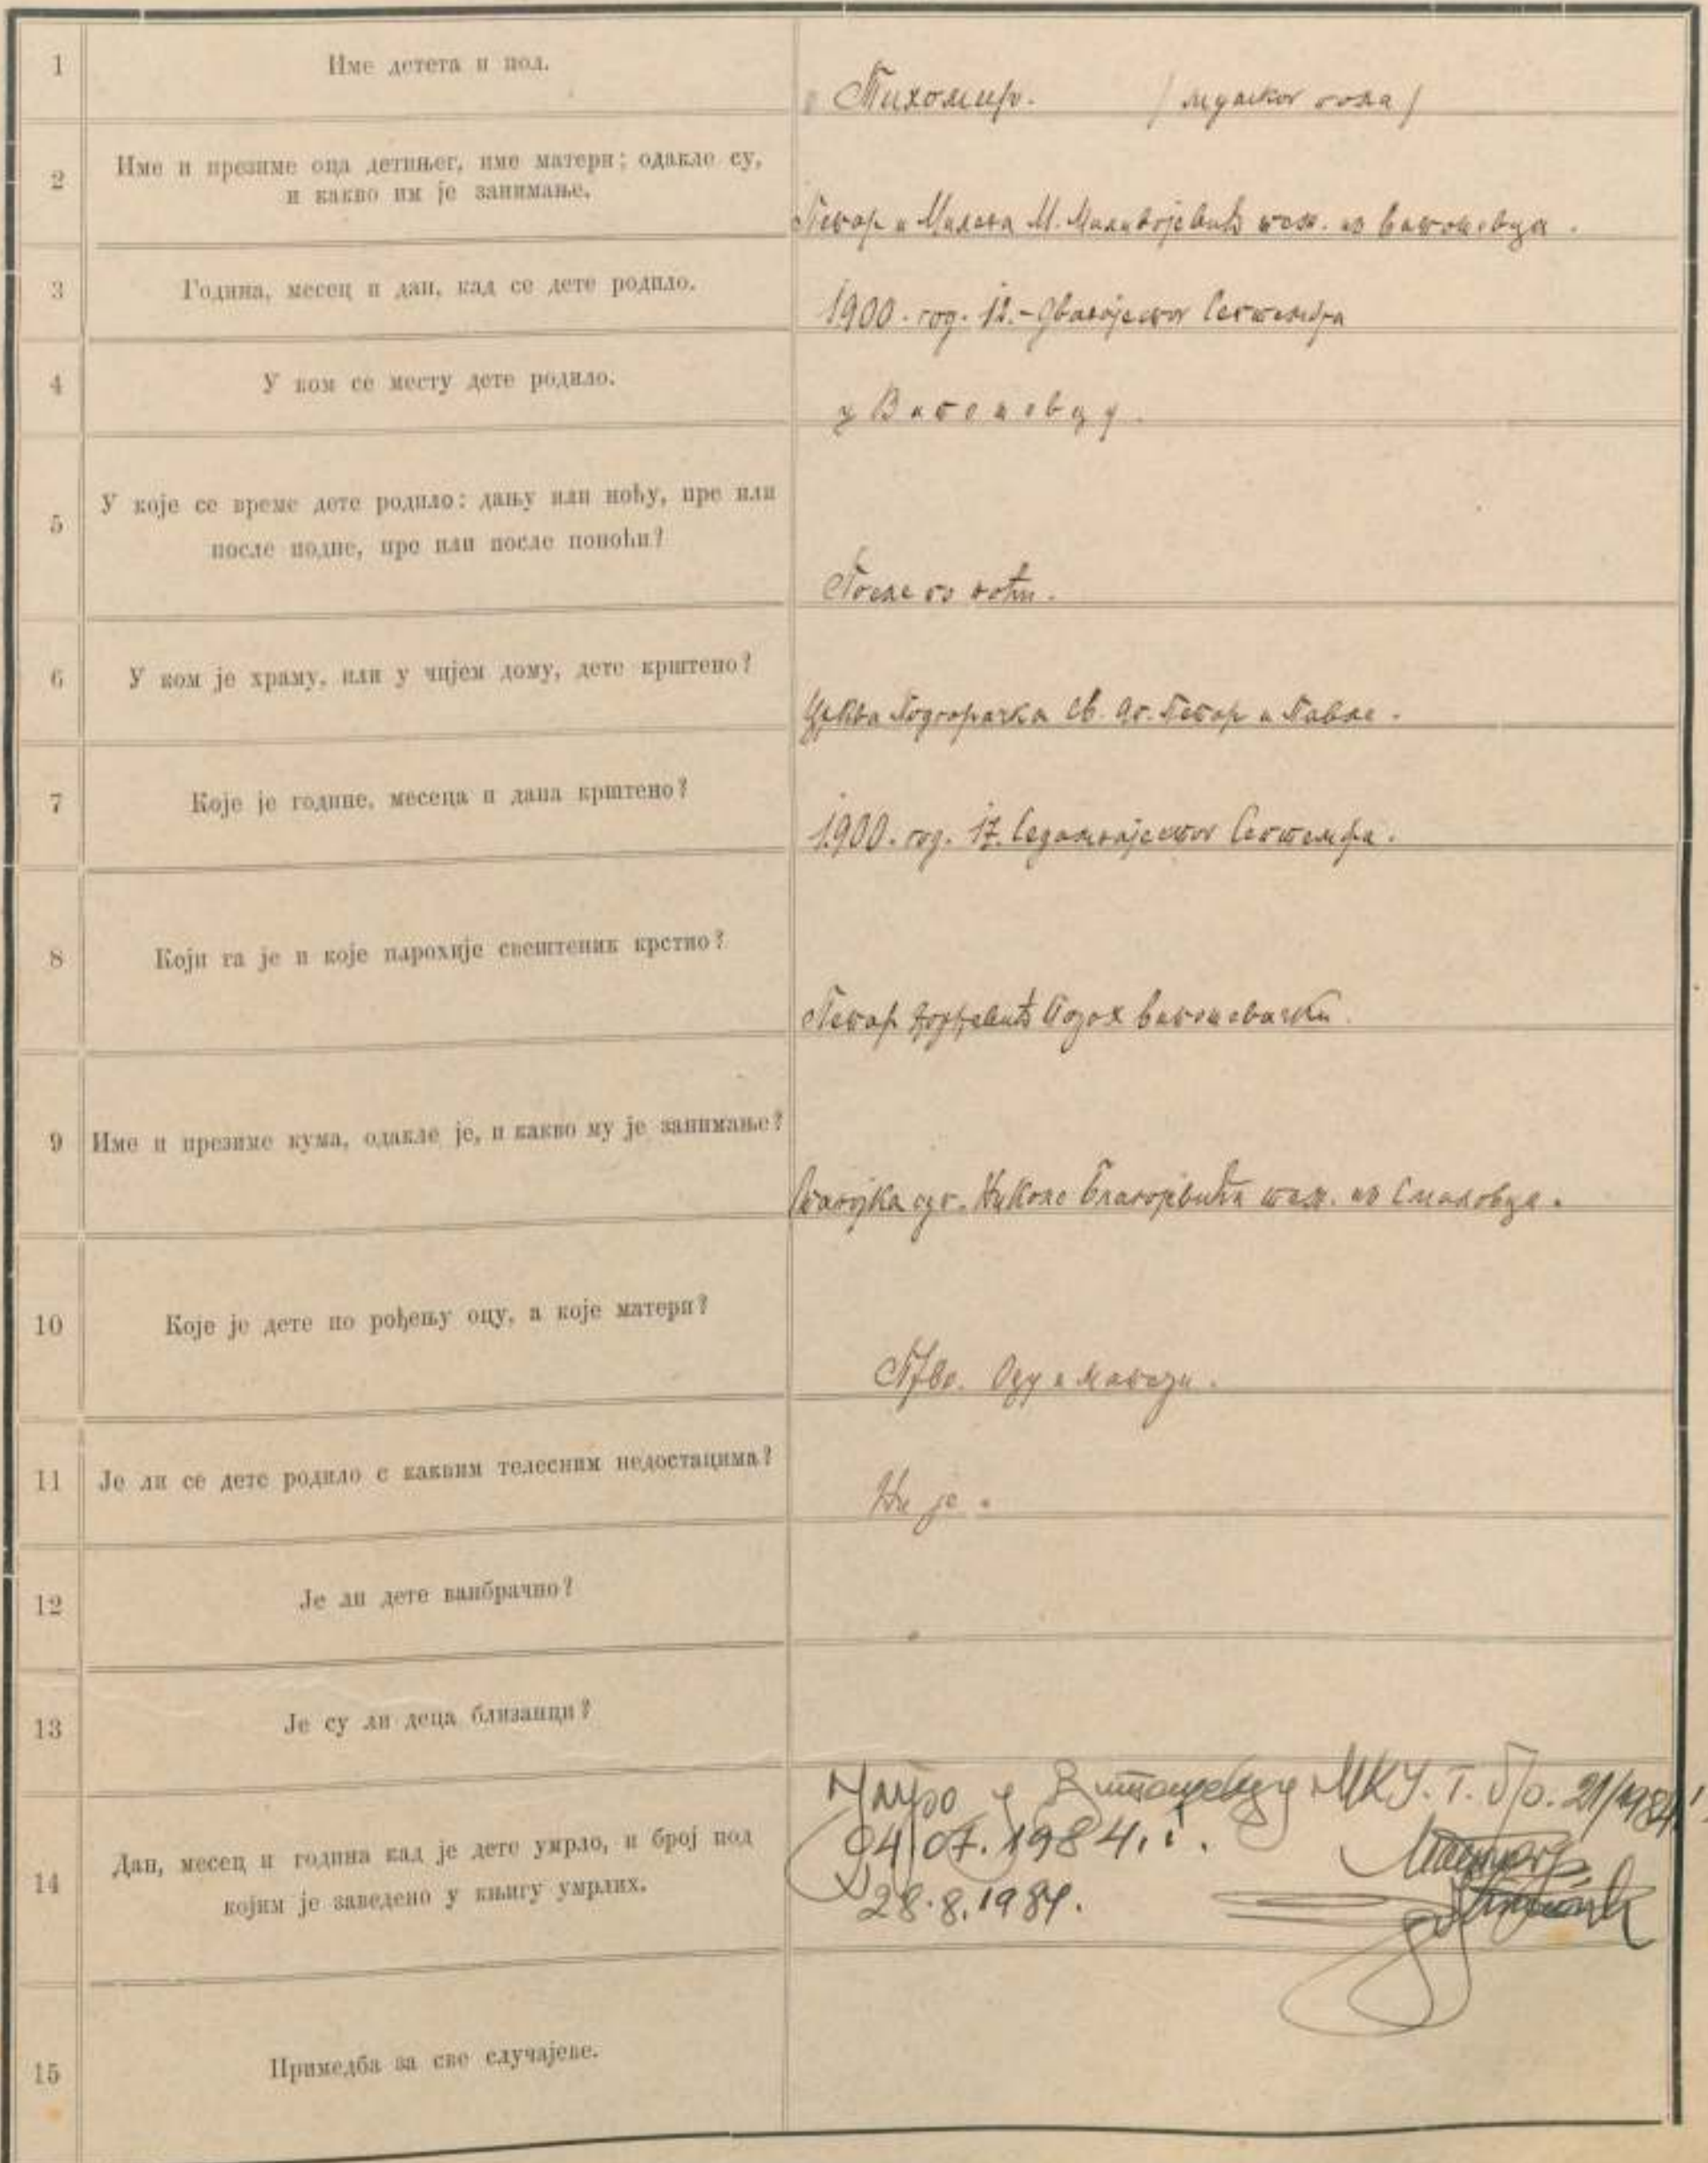 1
Име детета и пол.
Тихомир. / мушког пола /
2
Име и презиме оца детињег, име матери; одакле су,
и какво им је занимање.
Петар и Милева М. Миливојевић теж. из Витошевца.
3
Година, месец и дан, кад се дете родило.
1900. год. 12. - Дванајестог Септембра
4
У ком се месту дете родило.
у Витошевцу.
5
У које се време дете родило: дању или ноћу, пре или
после подне, пре или после поноћи?
После по ноћи.
6
У ком је храму, или у чијем дому, дете крштено?
Црква Подгорачка Св. Ап. Петар и Павле.
7
Које је године, месеца и дана крштено?
1900. год. 17. Седамнајестог Септембра.
8
Који га је и које парохије свештеник крстио?
Петар Ђорђевић Парох витошевачки.
9
Име и презиме кума, одакле је, и какво му је занимање?
Станојка суп. Николе Благојевића теж. из
10
Које је дете по рођењу оцу, а које матери?
Прво. Оцу и матери.
11
Је ли се дете родило с каквим телесним недостацима?
Ни је.
12
Је ли дете ванбрачно?
13
Је су ли деца близанци?
14
Дан, месец и година кад је дете умрло, и број под
којим је заведено у књигу умрлих.
Умро у Витошевцу МКУ. Т. бр. 21/1984
04.07.1984. г.
28.8.1984.
15
Примедба за све случајеве.